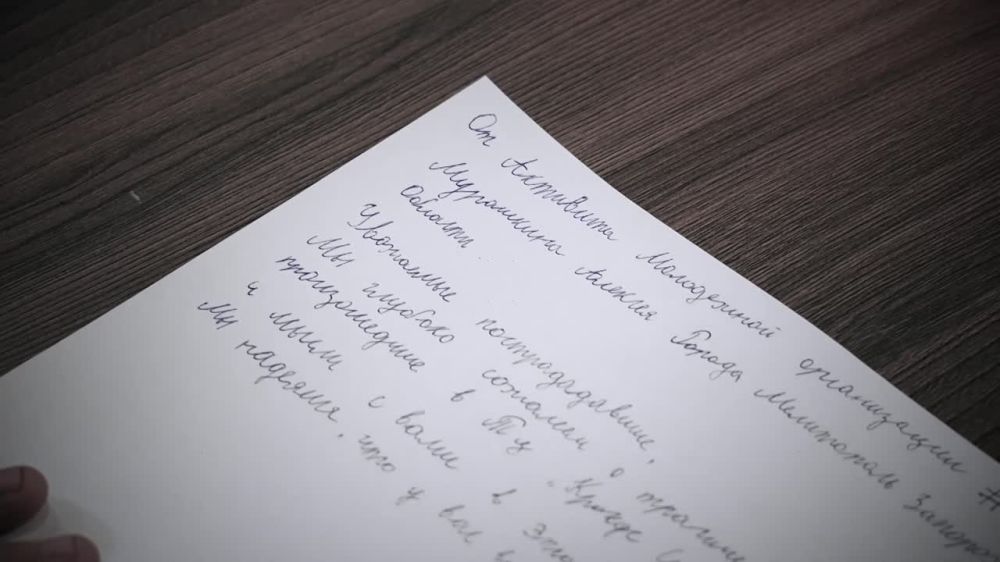 От Активиста Молодежной организации #
Мурашкина Алексея Города Мелитополь Запоро
области
Уважаемые пострадавшие,
Мы глубоко сожалеем о трагиче
произошедшие в ТЦ "Крокус
и мысли с вами в это
Мы надеемся, что у вас